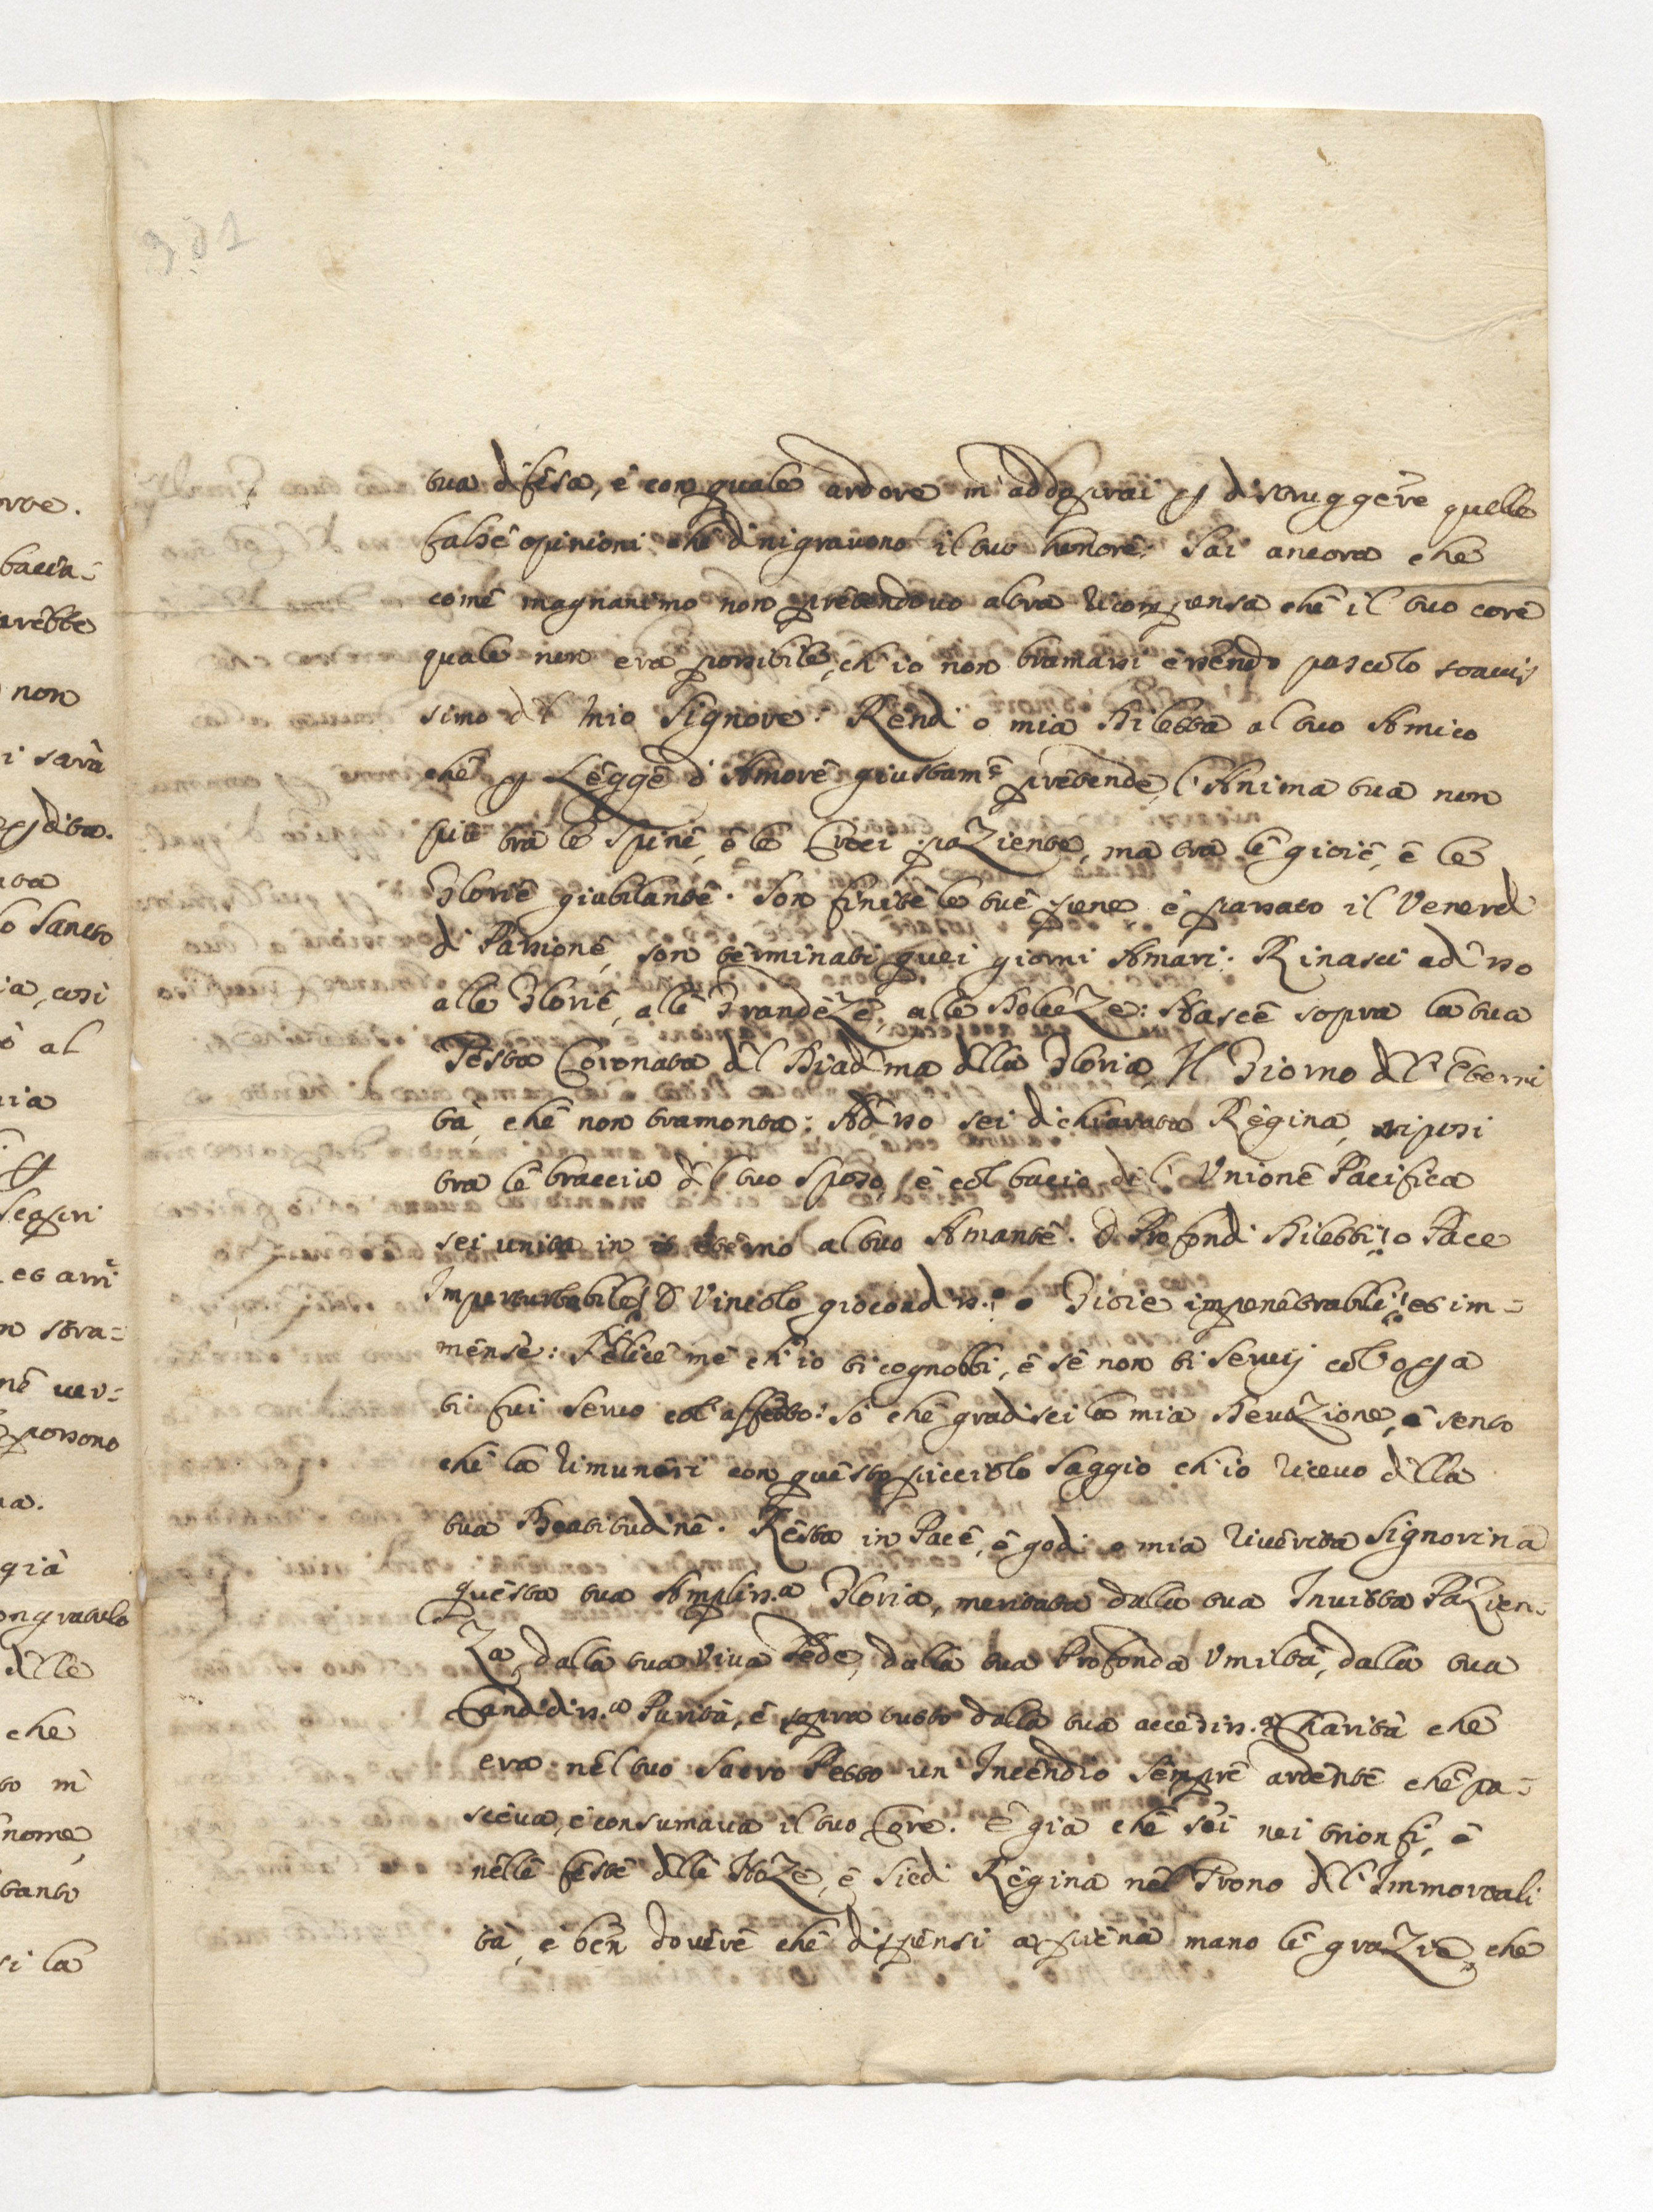 tua difesa, è con quale ardore m'addoprai p distruggere quelle
false opinioni che dinigravono il tuo honore: Sai ancora che
come magnanimo non pretendevo altra ricompensa che il tuo core
quale non era possibile, ch'io non bramassi essendo pascolo soavis
simo del mio Signore: Rendi o mia Diletta al tuo Amico
che p Legge d'Amore giustam.e pretende, l'Anima tua non
più tra le spine, è le Croci paziente, ma tra le gioie, è le
Glorie giubilante. Son finite le tue pene è passato il Venerdi
di Passione, son terminati quei giorni Amari: Rinasci adesso
alle Glorie, alle Grandeze, alle Dolceze: Nasce sopra la tua
Testa Coronata del Diadema della Gloria, Il Giorno dell'Eterni
tà, che non tramonta: Adesso sei dichiarata Regina, riposi
tra le braccia del tuo Sposo, è col bacio dell'Unione Pacifica
sei unita in eterno al tuo Amante. O Profondi Diletti! o Pace
Imperturbabile! O Vincolo giocondiss.o! o Gioie impenetrabili! et im=
mense: Felice me ch'io ti cognobbi, è se non ti Servij coll'opra
ti fui Servo coll'affetto! So che gradisci la mia Devozione, è sento
che la rimuneri con questo picciolo Saggio ch'io ricevo della
tua Beatitudine. Resta in Pace, è godi o mia riverita Signorina
questa tua Ampliss.a Gloria, meritata dalla tua Invitta Pazien=
za, dalla tua Viva Fede, dalla tua Profonda Umiltà, dalla tua
Candidiss.a Purità, è sopra tutto dalla tua accesiss.a Charità che
era nel tuo Sacro Petto un Incendio Sempre ardente che pa=
sceva, è consumava il tuo Core. E già che sei nei trionfi, è
nelle feste delle Noze, è Siedi Regina nel Trono dell'Immortali
tà, è ben dovere che dispensi a piena mano le grazie, che